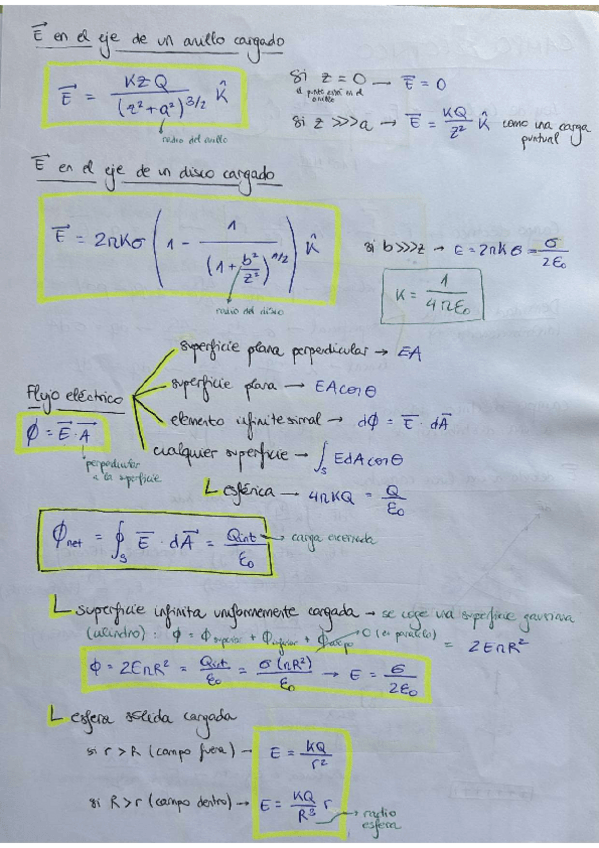 E⃗ en el eje de un anillo cargado
E⃗ = KzQ / (z²+a²)^3/2 K̂
radio del anillo
Si z = 0 → E⃗ = 0
el punto está en el
Si z >>> a → E⃗ = KQ/z² K̂ como una carga
puntual
E⃗ en el eje de un disco cargado
E⃗ = 2πKσ (1 - 1/(1+b²/z²)^1/2) K̂
radio del disco
si b>>>z → E = 2πKσ = σ/2ε₀
K = 1/4πε₀
Flujo eléctrico
ϕ = E⃗·A⃗
perpendicular
a la superficie
superficie plana perpendicular → EA
superficie plana → EA cos θ
elemento infinitesimal → dϕ = E⃗ · dA⃗
cualquier superficie → ∫s E dA cos θ
esférica → 4πKQ = Q/ε₀
ϕnet = ∮s E⃗ · dA⃗ = Qint/ε₀ → carga encerrada
superficie infinita uniformemente cargada → se coge una superficie gaussiana
(cilindro) : ϕ = ϕsuperior + ϕinferior + ϕ 0 (es paralelo) = 2EπR²
ϕ = 2EπR² = Qint/ε₀ = σ(πR²)/ε₀ → E = σ/2ε₀
esfera sólida cargada
si r > R (campo fuera) → E = KQ/r²
si R > r (campo dentro) → E = KQ/R³ r
radio
esfera